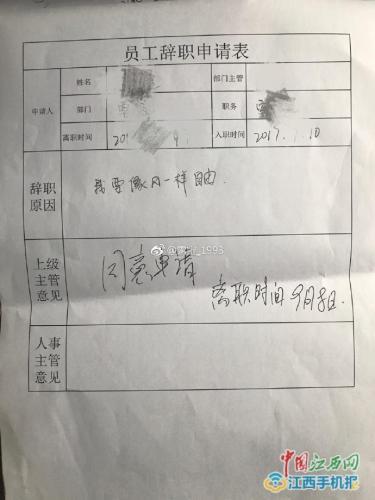 员工辞职申请表
姓名 部门主管
申请人 部门 职务
离职时间 201 9. 入职时间 2017. .10
辞职原因 我要像风一样自由.
上级主管意见 同意申请
离职时间9月8日.
人事主管意见
_1993
中国江西网
江西手机报